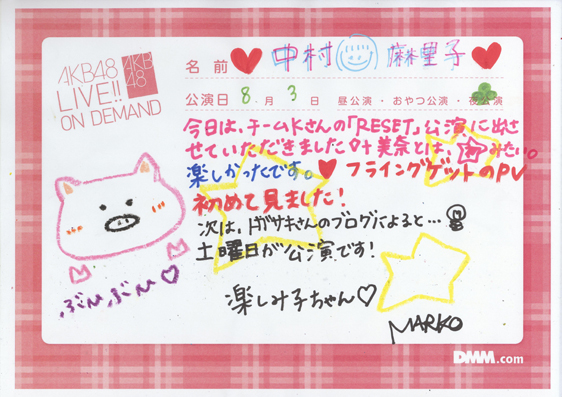 AKB48
LIVE!!
ON DEMAND
AKB
48
名前 中村 麻里子
公演日 8月 3日 昼公演・おやつ公演・夜公演
今日は、チームKさんの「RESET」公演に出さ
せていただきました 叶美奈とは、みたい。
楽しかったです。フライングゲットのPV
初めて見ました!
次は、トガサキさんのブログによると…
土曜日が公演です!
楽しみ子ちゃん♡
ぶんぶん♡
MARKO
DMM.com